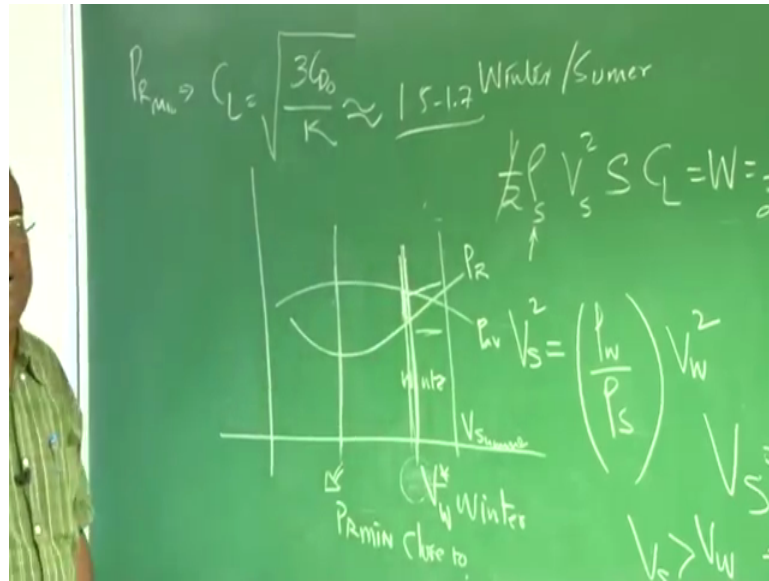 PRMin ⇒ CL = √(3CD0/K) ≈ 1.5-1.7 Winter/Sumer
1/2 ρs Vs² S CL = W =
PR
PAV
Vs² = (ρw/ρs) Vw²
Wint
VSummer
Vs
Vw* Winter
PRMIN Close to
Vs > Vw